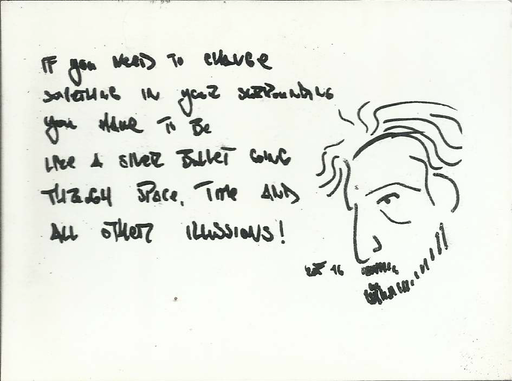 IF you NEED TO CHANGE
SOMETHING IN your SURROUNDING
you HAVE TO BE
LIKE A SILVER BULLET GOING
THROUGH SPACE, TIME AND
ALL OTHER ILLUSSIONS!
16